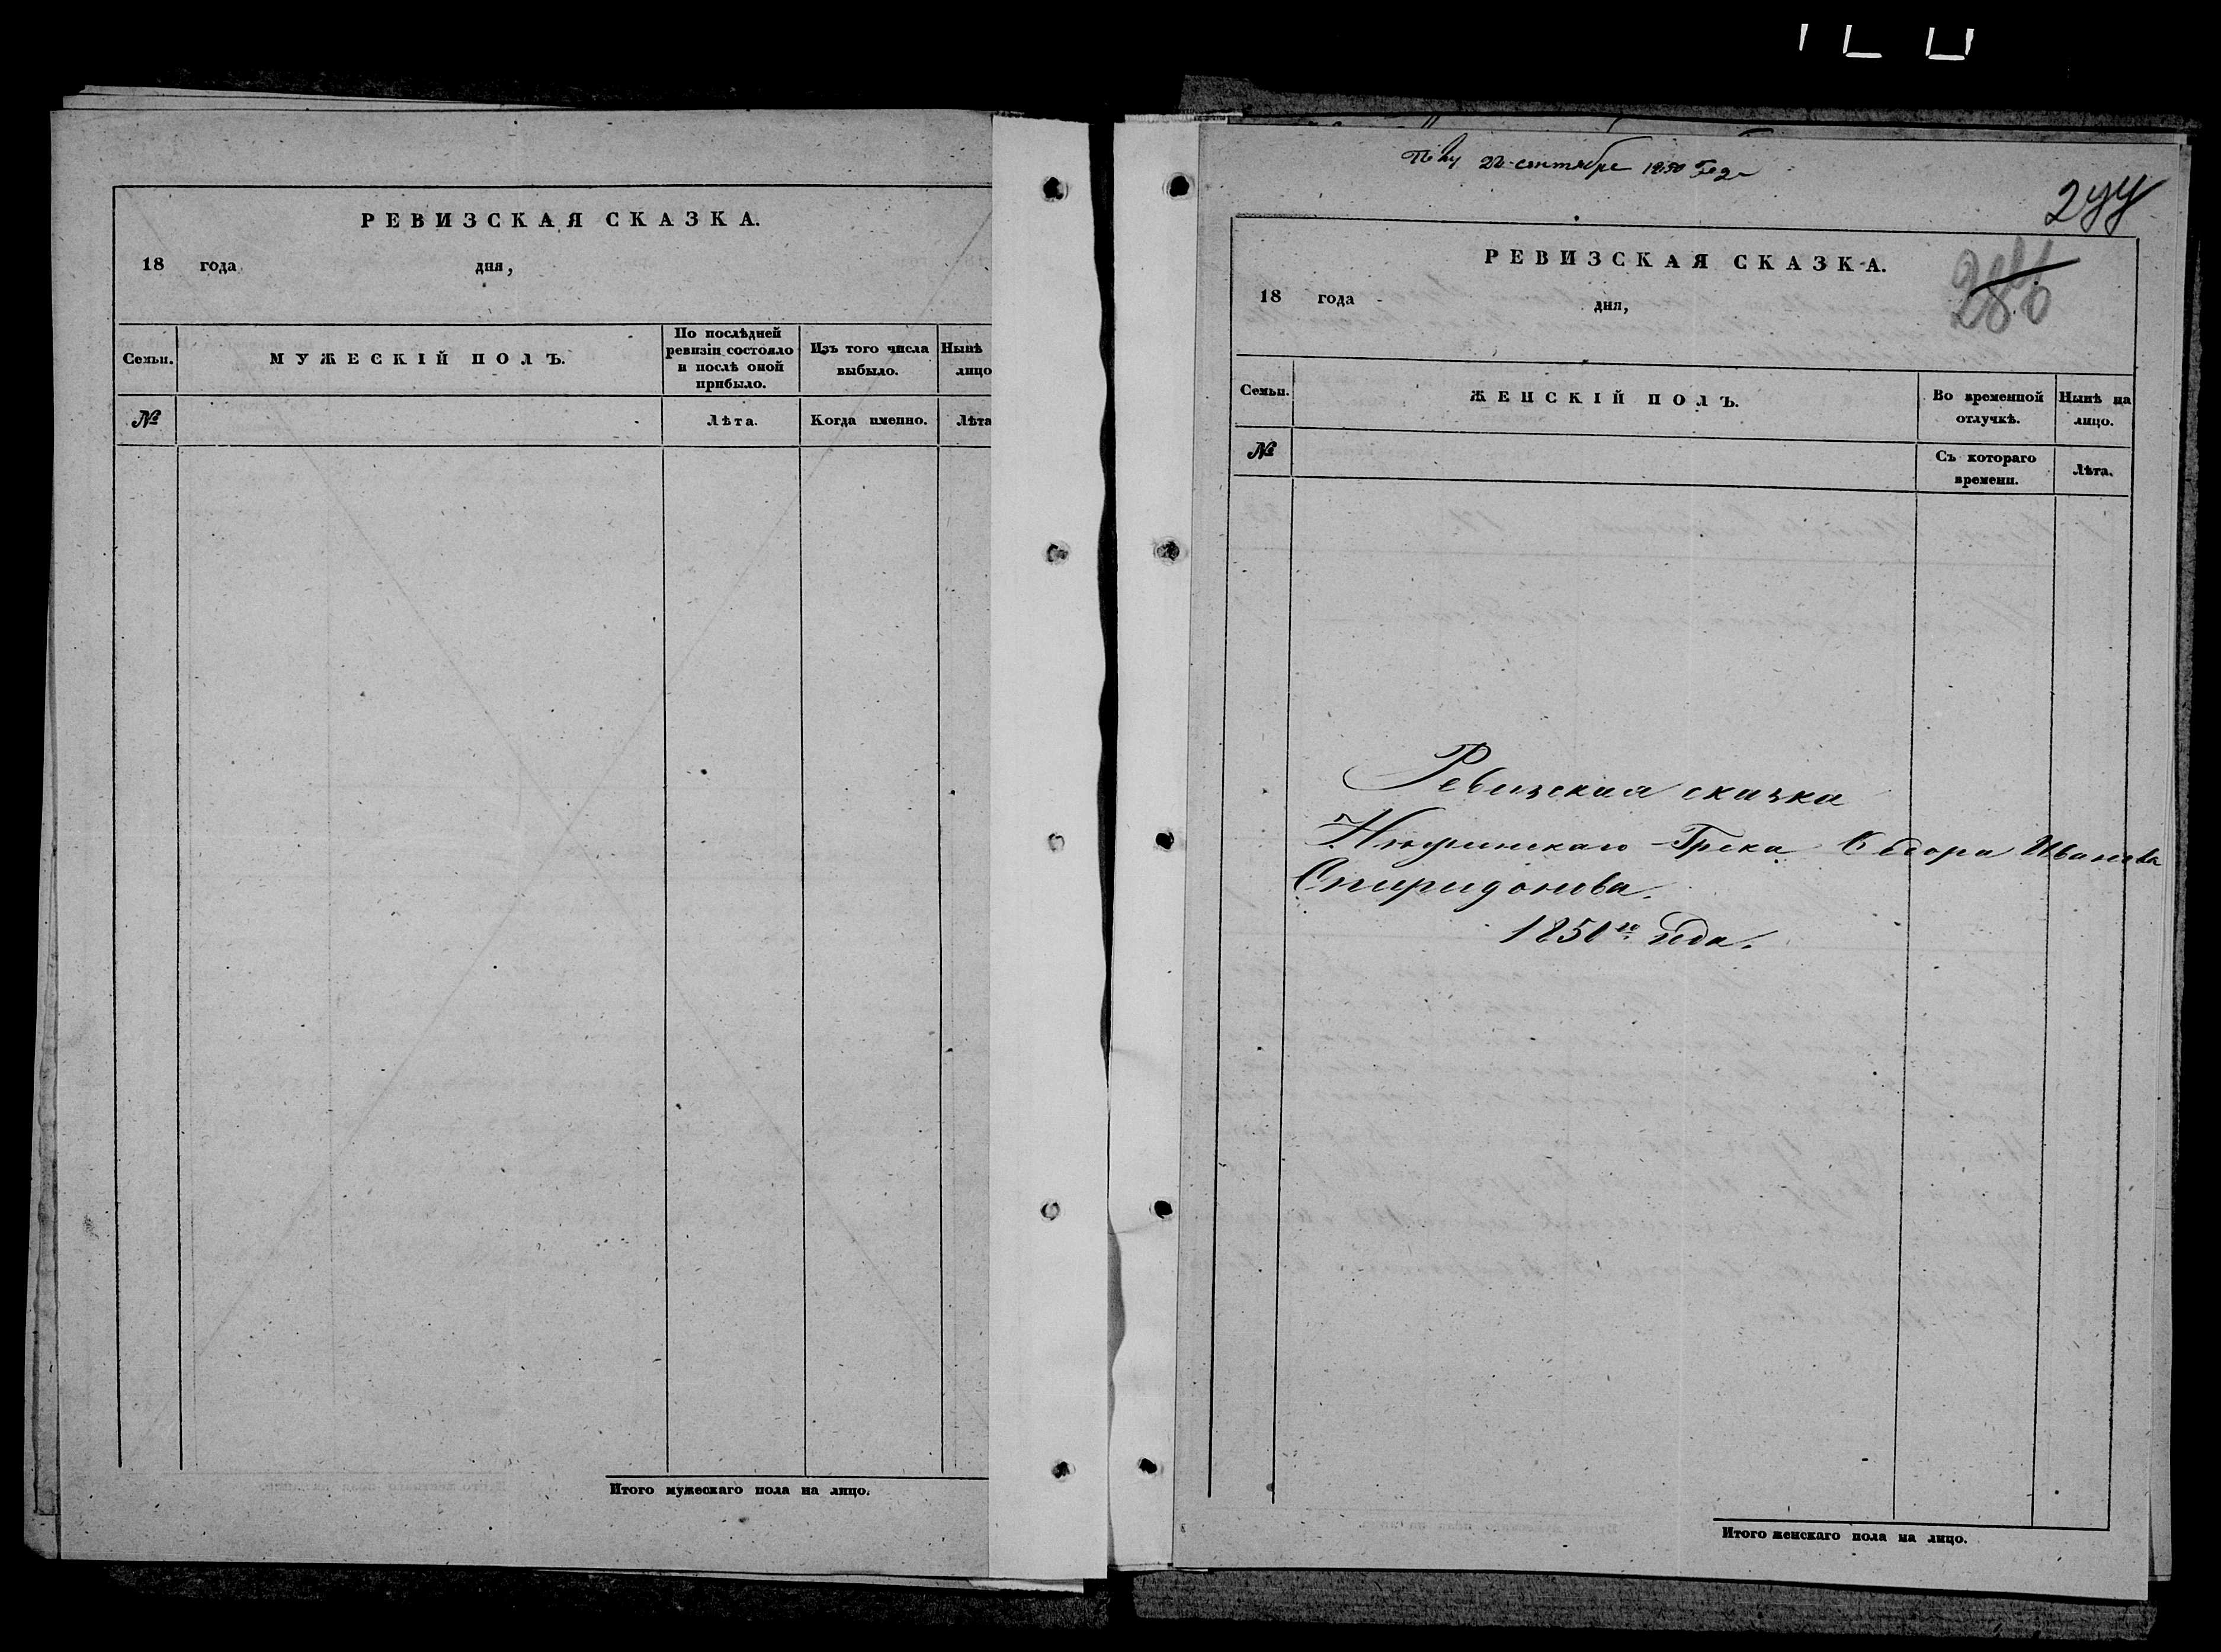 РЕВИЗСКАЯ СКАЗКА.
18 года дня,
Семьи. МУЖЕСКІЙ ПОЛЪ. По послѣдней ревизіи состояло и послѣ оной прибыло. Изъ того числа выбыло. Нынѣ лицо
№ Лѣта. Когда именно. Лѣта
Итого мужескаго пола на лицо.
22 сентября 1850 года
277
286
РЕВИЗСКАЯ СКАЗКА.
18 года дня,
Семьи. ЖЕНСКІЙ ПОЛЪ. Во временной отлучкѣ. Нынѣ на лицо.
№ Съ котораго времени. Лѣта.
Ревизская сказка
Нѣжинскаго Грека Федора Иванова
Спиридонова.
1850го года.
Итого женскаго пола на лицо.